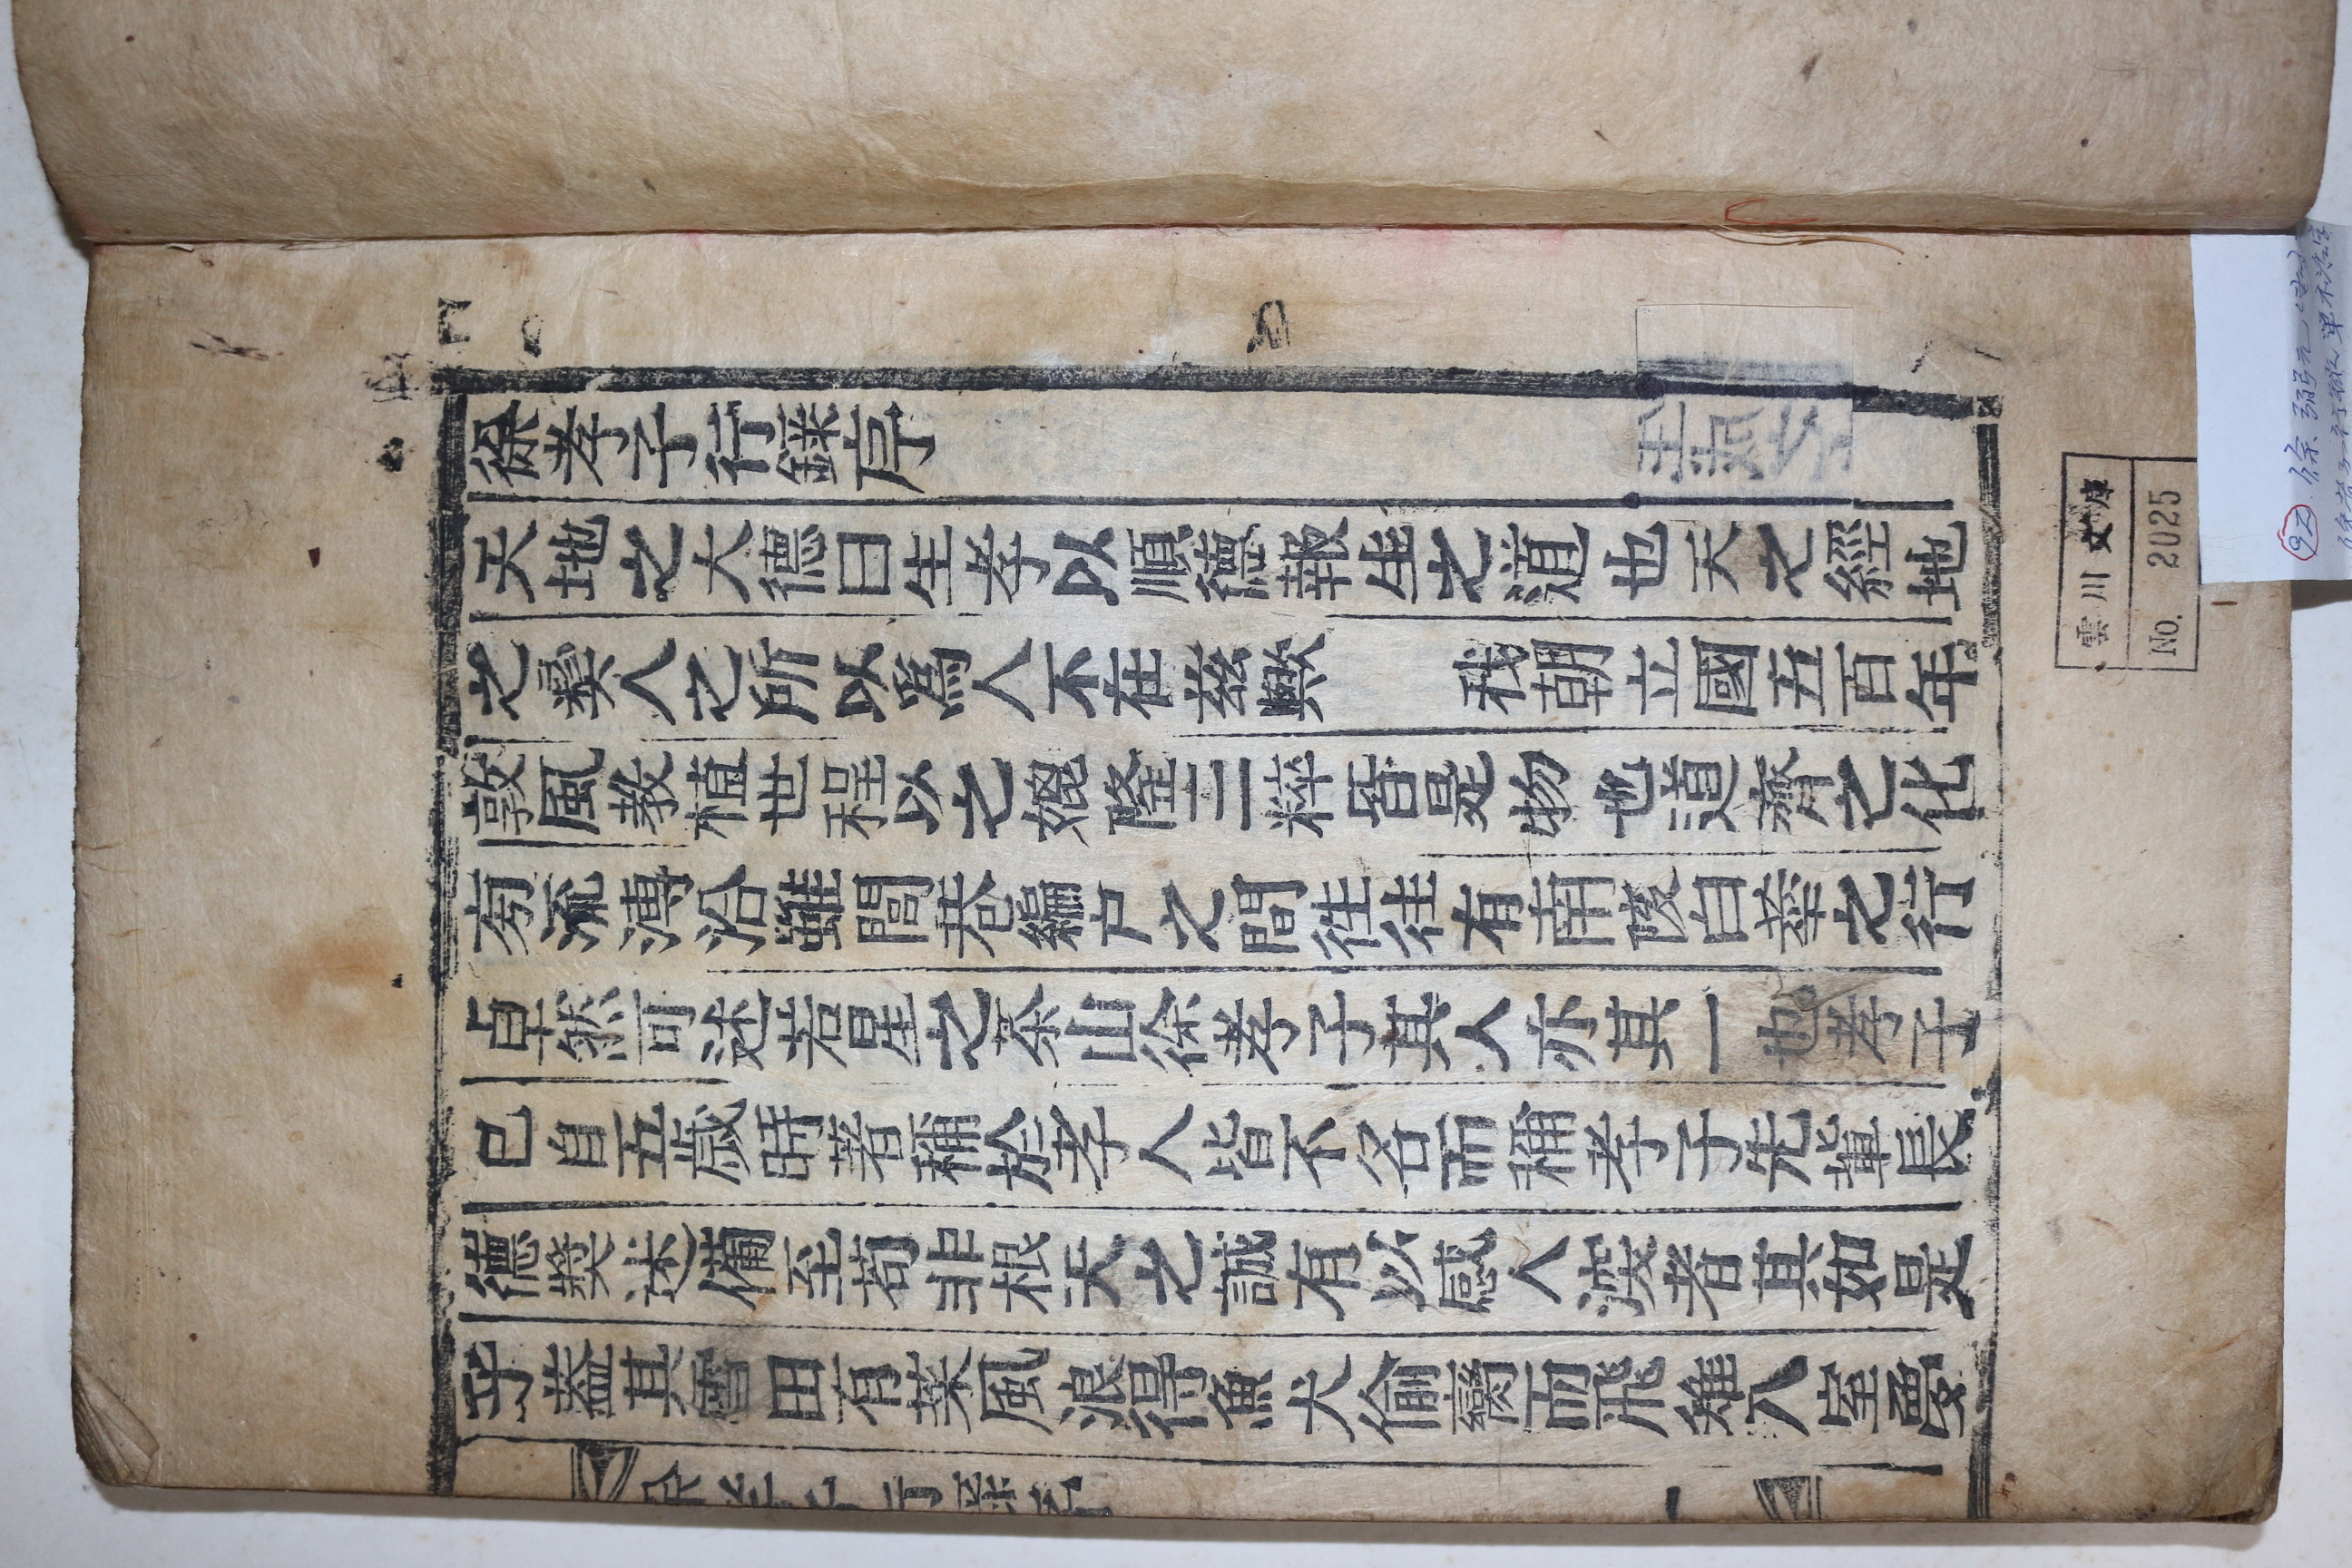 徐孝子行錄序
天地之大德曰生孝以順德報生之道也天之經地
之彛人之所以爲人不在玆歟 我朝立國五百年
敦風教植世程以之媲隆三粹皆是物也道齊之化
旁流漙洽雖閭巷編户之間徃徃有南陔白華之行
卓然可述若星之茶山徐孝子其人亦其一也孝子
已自五歲時著稱於孝人皆不名而稱孝子先輩長
德奬述備至苟非根天之誠有以感人深者其如是
乎葢其雪田有菜風浪得魚犬偷臠而飛雉入室夢
雲川文庫
No. 2025
92 徐